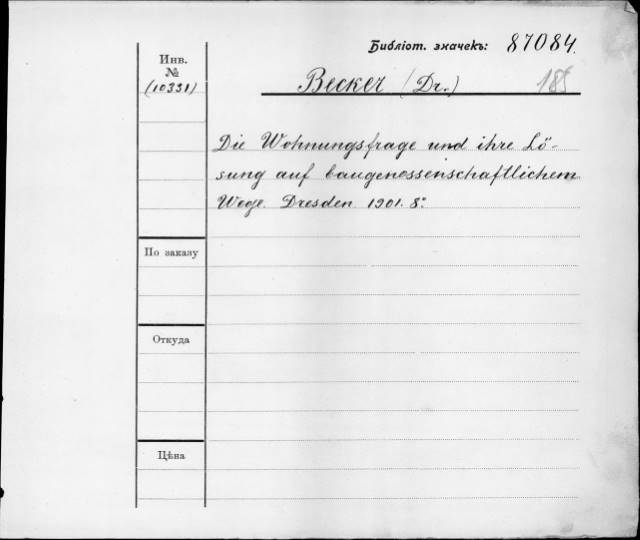 Библіот. значекъ: 87084.
Инв.
№
(10331)
Becker (Dr.) 185
Die Wohnungsfrage und ihre Lö-
sung auf baugenossenschaftlichem
Wege. Dresden 1901. 8°.
По заказу
Откуда
Цѣна